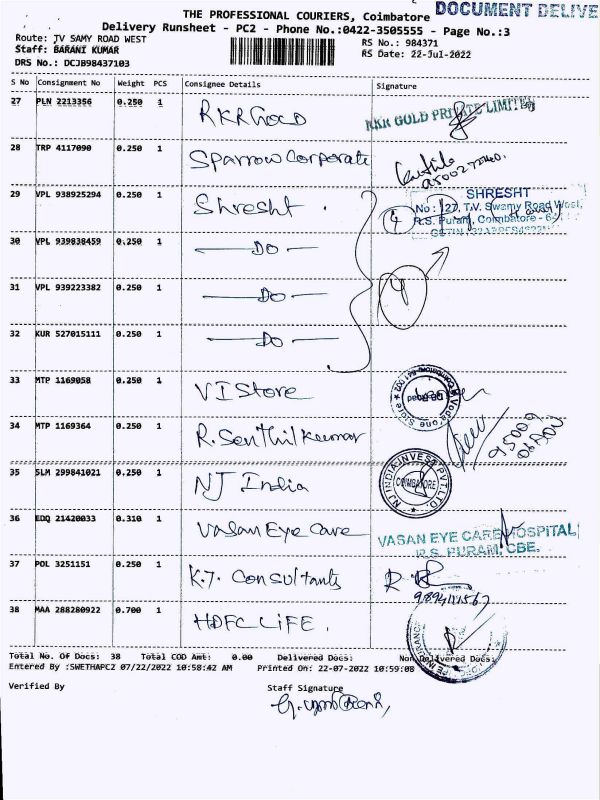 THE PROFESSIONAL COURIERS, Coimbatore DOCUMENT DELIVE
Delivery Runsheet - PC2 - Phone No.:0422-3505555 - Page No.:3
Route: JV SAMY ROAD WEST RS No.: 984371
Staff: BARANI KUMAR RS Date: 22-Jul-2022
DRS No.: DCJB98437103
S No Consignment No Weight PCS Consignee Details Signature
27 PLN 2213356 0.250 1 RKR Gold RKR GOLD PRIVATE LIMITED
28 TRP 4117090 0.250 1 Sparrow Corporate
29 VPL 938925294 0.250 1 Shresht SHRESHT
No : 127, T.V. Swamy Road West,
R.S. Puram, Coimbatore - 64
30 VPL 939838459 0.250 1 DO
31 VPL 939223382 0.250 1 DO 4
32 KUR 527015111 0.250 1 DO
33 MTP 1169058 0.250 1 VI Store
34 MTP 1169364 0.250 1 R. Senthil Kumar
35 SLM 299841021 0.250 1 NJ India NJ INDIA INVEST PVT. LTD. COIMBATORE
36 EDQ 21420033 0.310 1 Vasan Eye Care VASAN EYE CARE HOSPITAL
R.S. PURAM, CBE.
37 POL 3251151 0.250 1 K.J. Consultants
38 MAA 288280922 0.700 1 HDFC LIFE.
Total No. Of Docs: 38 Total COD Amt: 0.00 Delivered Docs: Non Delivered Docs:
Entered By :SWETHAPC2 07/22/2022 10:58:42 AM Printed On: 22-07-2022 10:59:08
Verified By Staff Signature